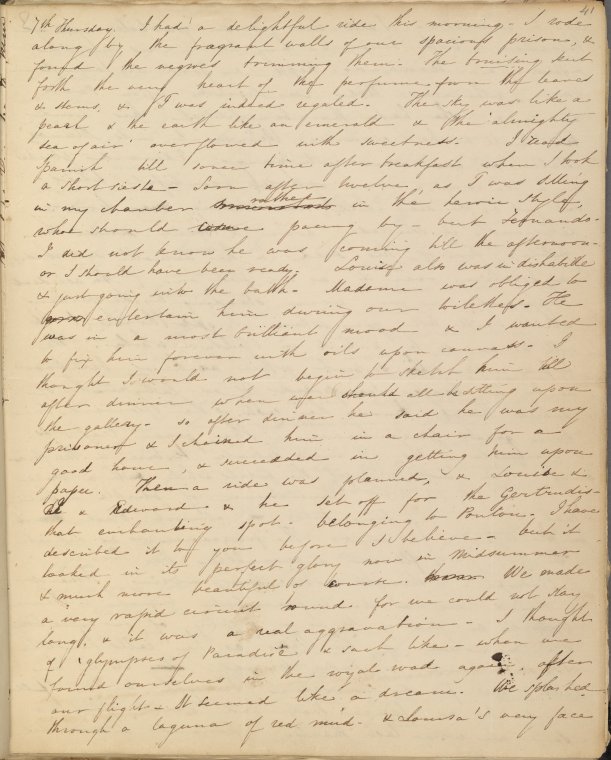 41
7th Thursday. I had a delightful ride this morning - I rode
along by the fragrant walls of our spacious prison, &
found the negroes trimming them. The bruising sent
forth the very heart of the perfume from the leaves
& stems, & I was indeed regaled. The sky was like a
pearl & the earth like an emerald & the 'almighty
sea of air' overflowed with sweetness. I read
Spanish till some time after breakfast when I took
a short siesta - Soon after twelve, as I was sitting
in my chamber rather in the heroic style,
who should come pacing by - but Fernando -
I did not know he was coming till the afternoon -
or I should have been ready. Louisa also was in dishabille
& just going into the bath - Madame was obliged to
entertain him during our toilettes - He
was in a most brilliant mood & I wanted
to fix him forever with oils upon canvass - I
thought I would not begin to sketch him till
after dinner when we should all be sitting upon
the gallery - so after dinner he said he was my
prisoner & I chained him in a chair for a
good hour, & succeeded in getting him upon
paper. Then a ride was planned, & Louisa &
I & Edward & he set off for the Gertrudis -
that enchanting spot - belonging to Ponton - I have
described it to you before I believe - but it
looked in its perfect glory now in midsummer
& much more beautiful of course. We made
a very rapid circuit round for we could not stay
long, & it was a real aggravation - I thought
of 'glympses of Paradise' & such like - when we
found ourselves in the royal road again, after
our flight - It seemed like a dream. We splashed
through a laguna of red mud - & Louisa's very face